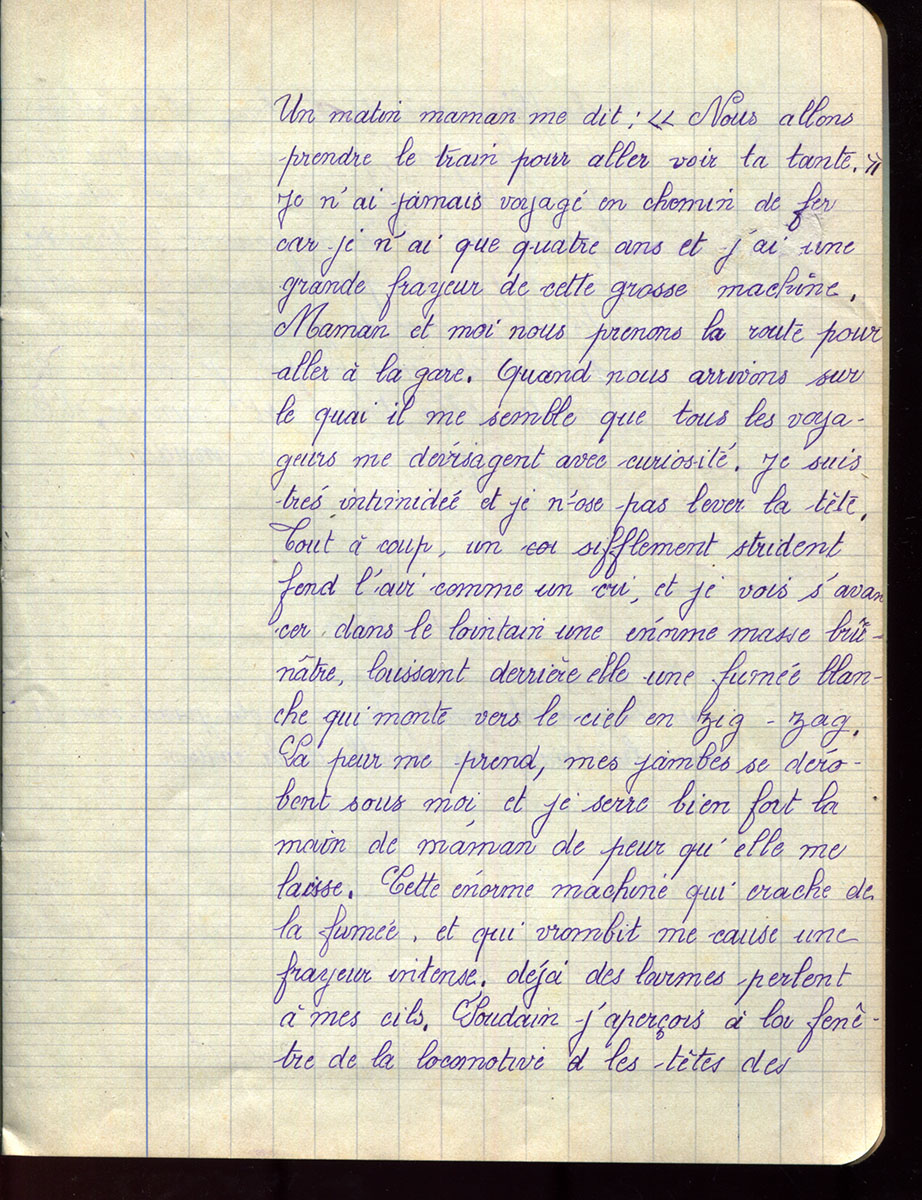 Un matin maman me dit : << Nous allons
prendre le train pour aller voir ta tante. >>
Je n'ai jamais voyagé en chemin de fer
car je n'ai que quatre ans et j'ai une
grande frayeur de cette grosse machine.
Maman et moi nous prenons la route pour
aller à la gare. Quand nous arrivons sur
le quai il me semble que tous les voya-
geurs me dévisagent avec curiosité. Je suis
très intimidée et je n'ose pas lever la tête.
Tout à coup, un cri sifflement strident
fend l'air comme un cri, et je vois s'avan
cer dans le lointain une énorme masse brû-
nâtre, laissant derrière elle une fumée blan-
che qui monte vers le ciel en zig - zag.
La peur me prend, mes jambes se déro-
bent sous moi et je serre bien fort la
main de maman de peur qu'elle me
laisse. Cette énorme machine qui crache de
la fumée, et qui vrombit me cause une
frayeur intense. déjà des larmes perlent
à mes cils. Soudain j'aperçois à la fenê-
tre de la locomotive d les têtes des